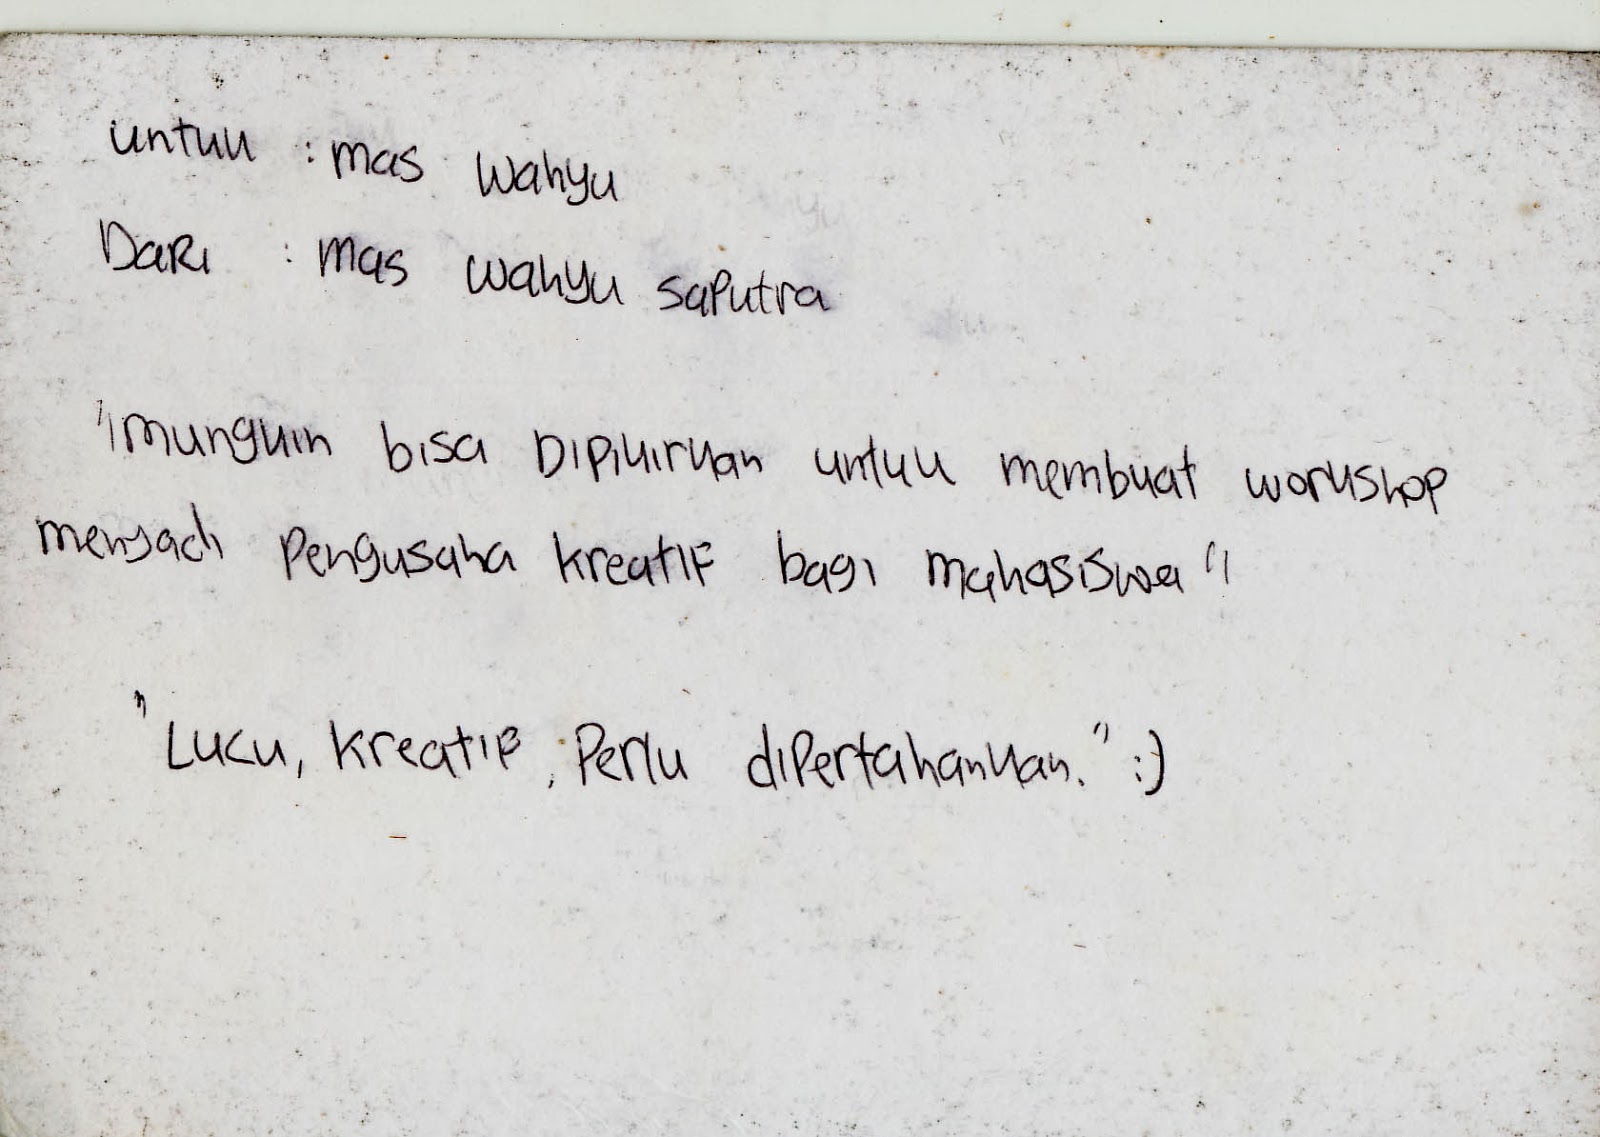 untuk : mas wahyu
Dari : mas wahyu saputra
"mungkin bisa Dipikirkan untuk membuat workshop
menjadi pengusaha kreatif bagi mahasiswa"
"Lucu, kreatif, Perlu dipertahankan." :)